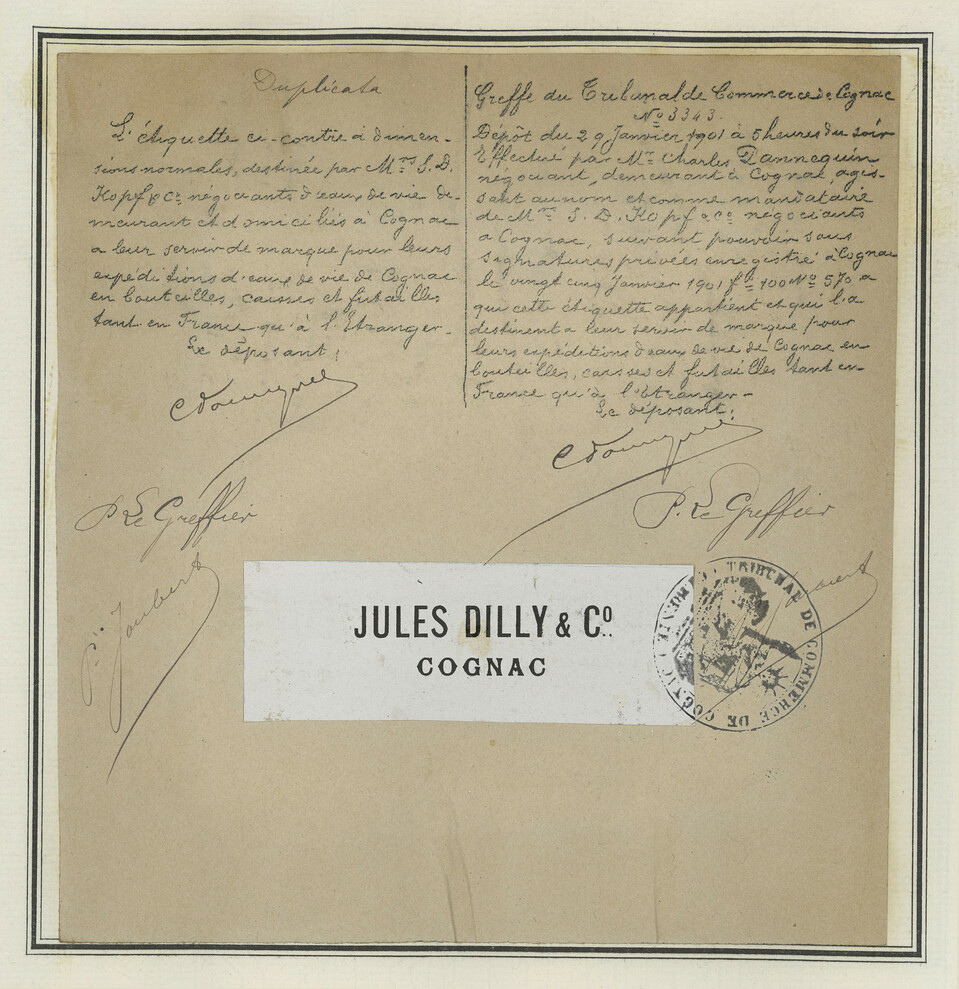 Duplicata
L'étiquette ci-contre à dimen-
sions normales, destinée par Mrs S. D.
Kopf & Co négociants d'eaux de vie de-
meurant et domiciliés à Cognac
a leur servir de marque pour leurs
expéditions d'eaux de vie de Cognac
en bouteilles, caisses et futailles
tant en France qu'à l'Etranger-
Le déposant;
P. Le Greffier
Joubert
Greffe du Tribunal de Commerce de Cognac
No 3343.
Dépôt du 29 Janvier 1901 à 5 heures du soir
Effectué par Mr Charles Dannequin
négociant, demeurant à Cognac, agis-
sant au nom et comme mandataire
de Mrs S. D. Kopf & Co négociants
a Cognac, suivant pouvoir sous
signatures privées enregistré à Cognac
le vingt cinq Janvier 1901 fo 100 No 570 a
qui cette étiquette appartient et qui l'a
destinent a leur servir de marque pour
leurs expéditions d'eaux de vie de Cognac en
bouteilles, caisses et futailles tant en
France qu'à l'Etranger-
Le déposant;
P. Le Greffier
JULES DILLY & Co.
COGNAC
TRIBUNAL DE COMMERCE DE COGNAC